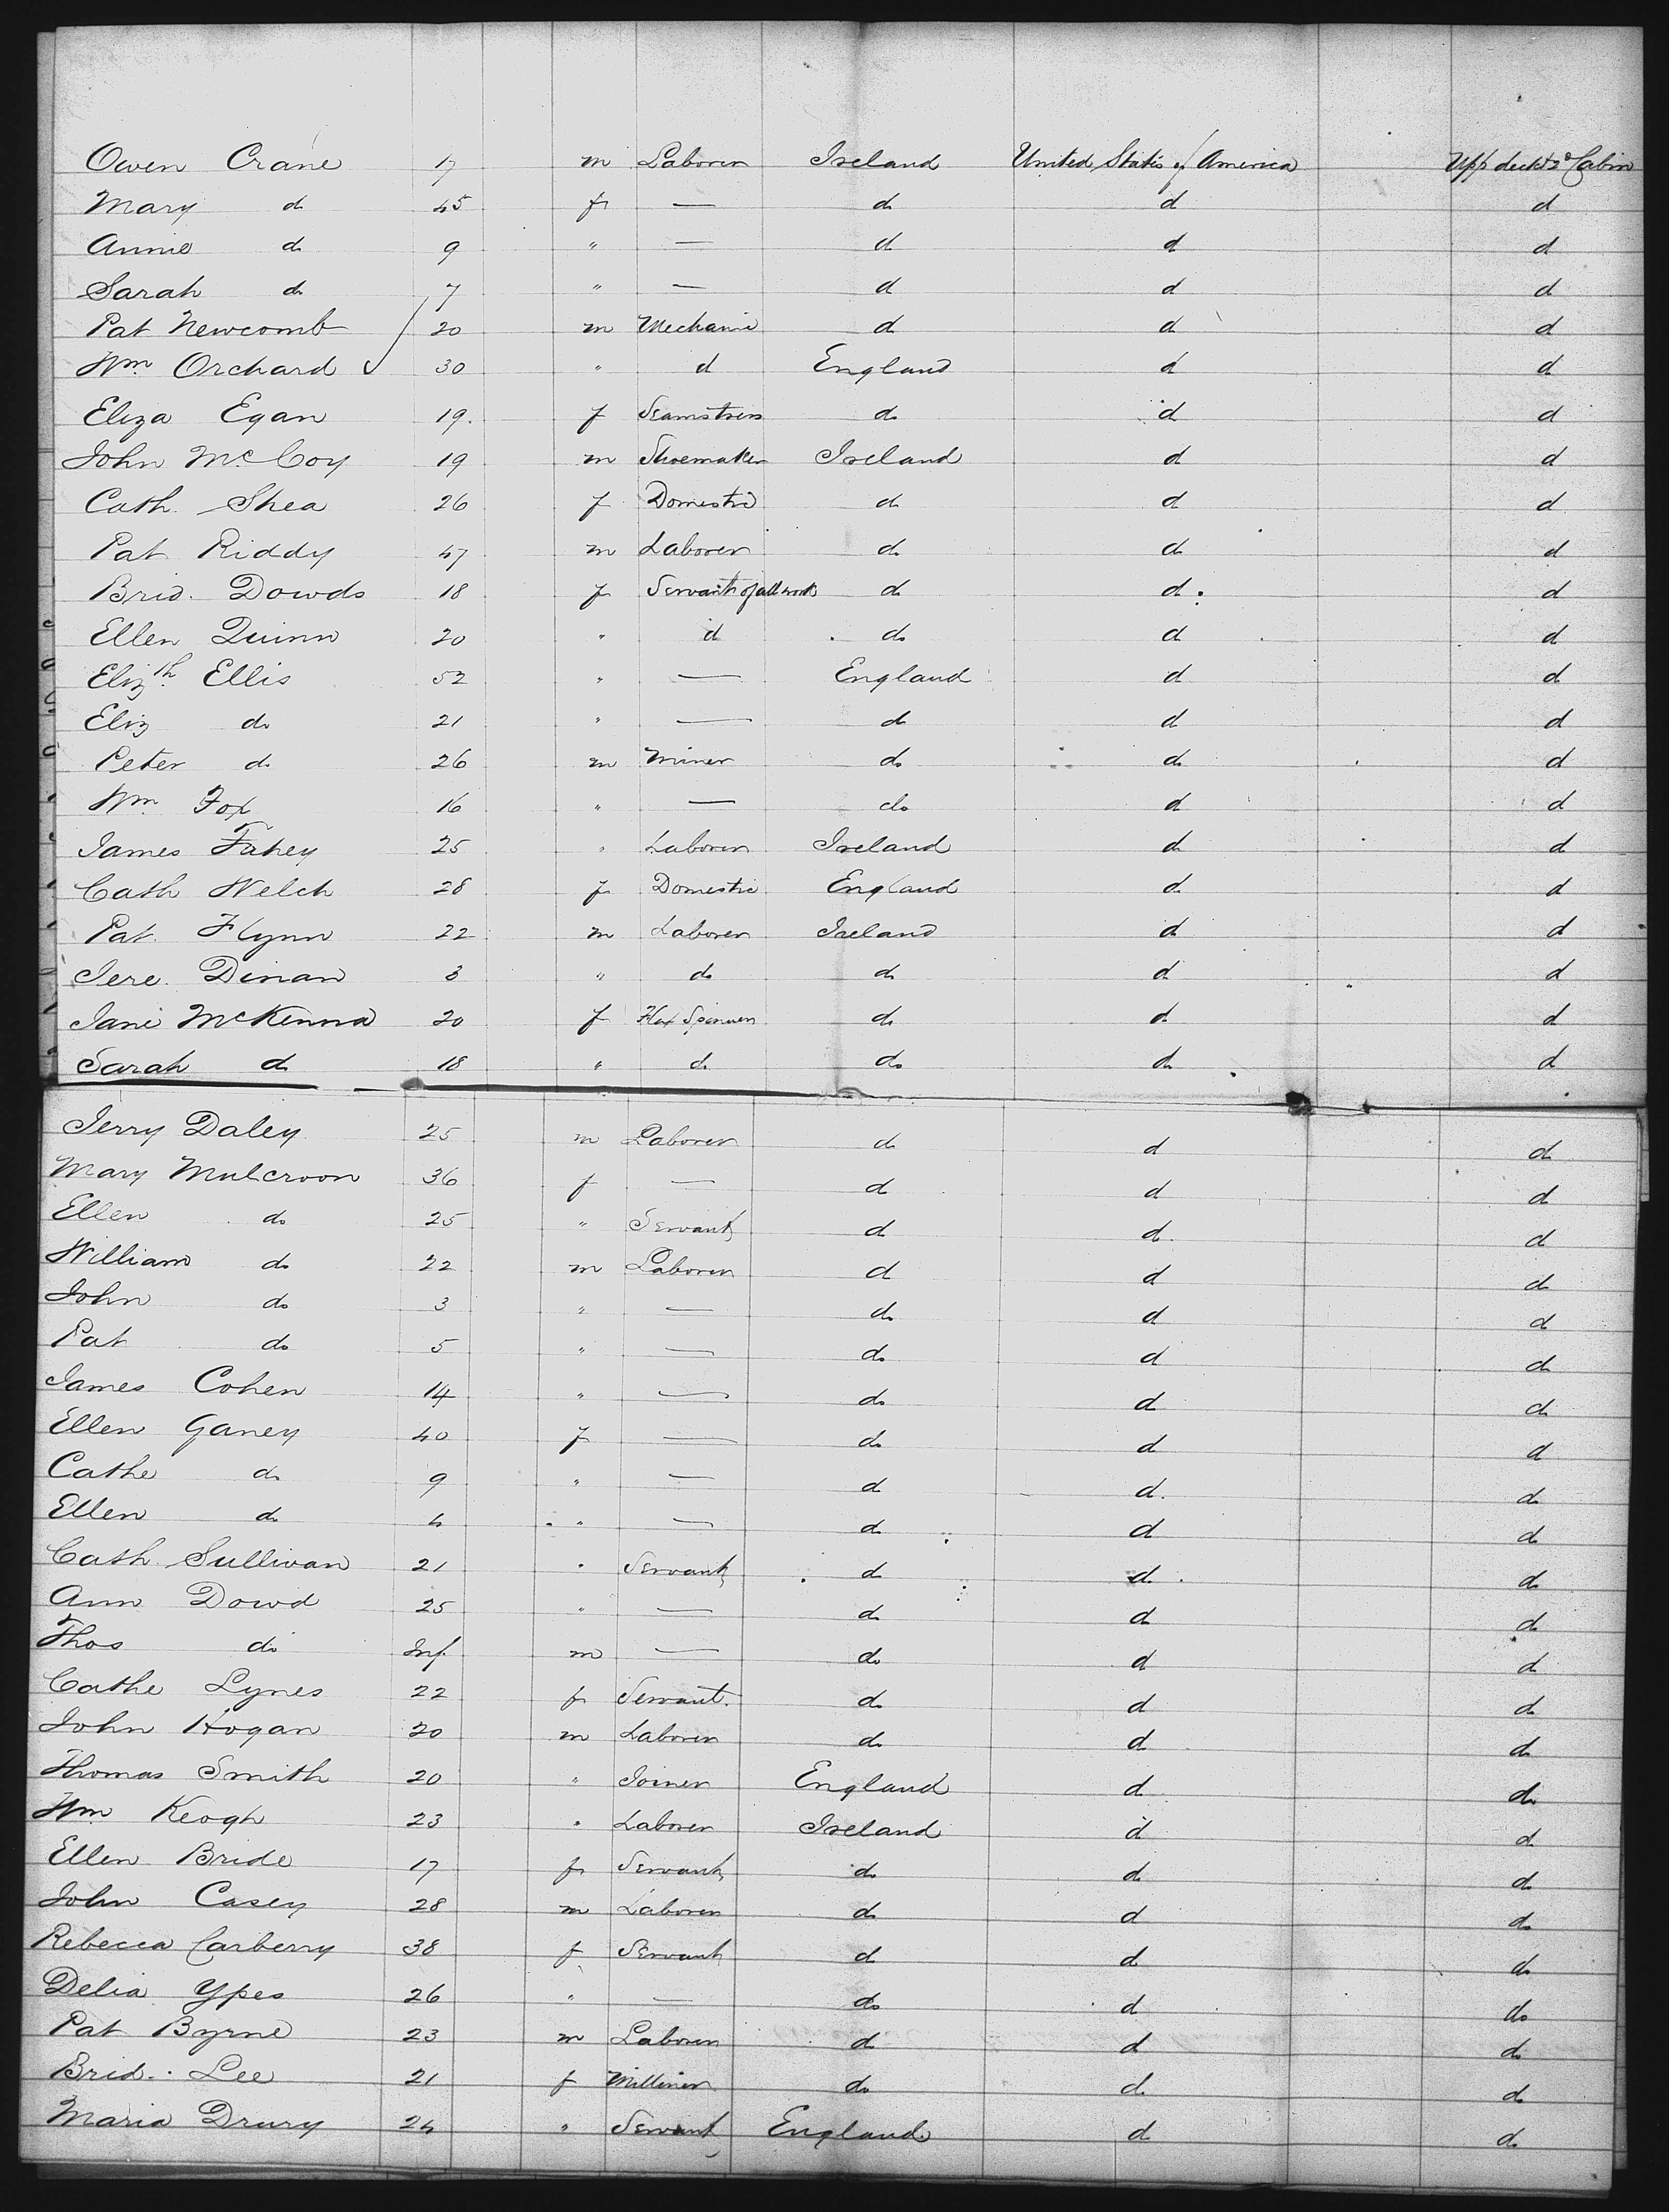 Owen Crane 17 m Laborer Ireland United States of America Upp deck & 2d Cabin
Mary do 45 f — d d d
Annie do 9 " — d d d
Sarah do 7 " — d d d
Pat Newcomb 20 m Mechanic d d d
Wm Orchard 30 " d England d d
Eliza Egan 19. f Seamstress do d d
John McCoy 19 m Shoemaker Ireland d d
Cath. Shea 26 f Domestic do d d
Pat Riddy 47 m Laborer do do d
Brid. Dowds 18 f Servant of all work do d d
Ellen Quinn 20 " d do d d
Elizth Ellis 52 " — England d d
Eliz do 21 " — do d d
Peter do 26 m Miner do do d
Wm Fox 16 " — do d d
James Fahey 25 " Laborer Ireland d d
Cath Welch 28 f Domestic England d d
Pat. Flynn 22 m Laborer Ireland d d
Jere. Dinan 3 " do do d d
Jane McKenna 20 f Flax Spinner do d d
Sarah do 18 " do do do d
Jerry Daley 25 m Laborer do d do
Mary Mulcroon 36 f — d d d
Ellen do 25 " Servant d d d
William do 22 m Laborer d d do
John do 3 " — do d d
Pat do 5 " — do d do
James Cohen 14 " — do d do
Ellen Ganey 40 f — do d d
Cathe do 9 " — d d. do
Ellen do 4 " — do d do
Cath. Sullivan 21 " Servant do d. do
Ann Dowd 25 " — do d do
Thos do Inf. m — do d do
Cathe Lynes 22 f Servant. do d do
John Hogan 20 m Laborer do d do
Thomas Smith 20 " Joiner England d do
Wm Keogh 23 " Laborer Ireland d d
Ellen Bride 17 f Servant do do do
John Casey 28 m Laborer do d do
Rebecca Carberry 38 f Servant d d do
Delia Ypes 26 " — do d do
Pat Byrne 23 m Laborer do d do
Brid. Lee 21 f Milliner do d do
Maria Drury 24 " Servant England d do